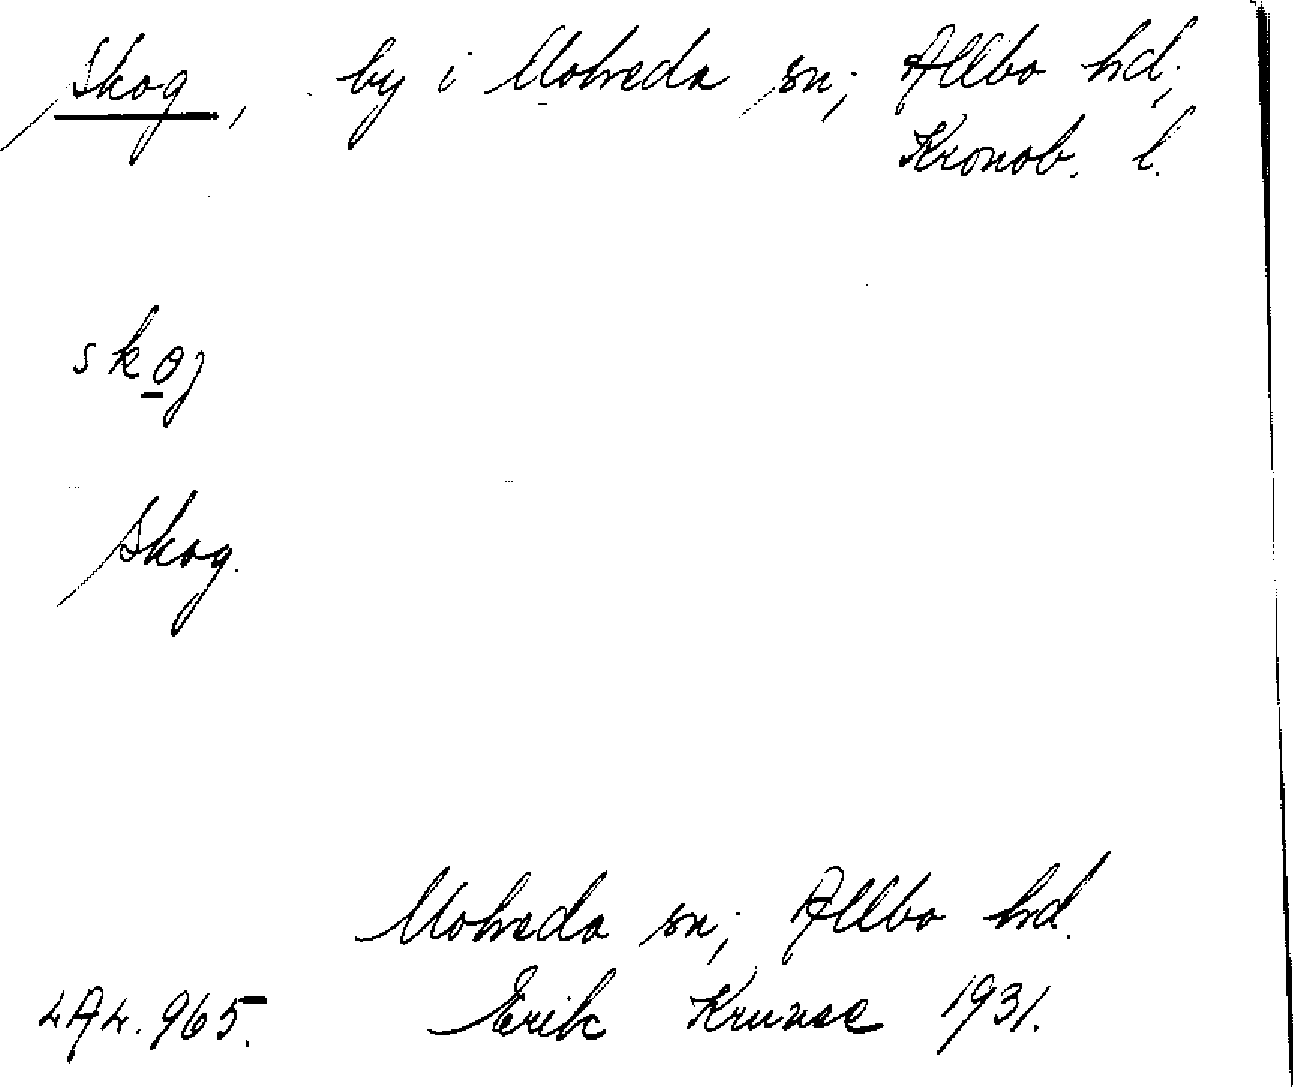 Skog, by i Moheda sn, Allbo hd,
Kronob. l.
skoj
Skog.
Moheda sn, Allbo hd.
Erik Kruuse 1931.